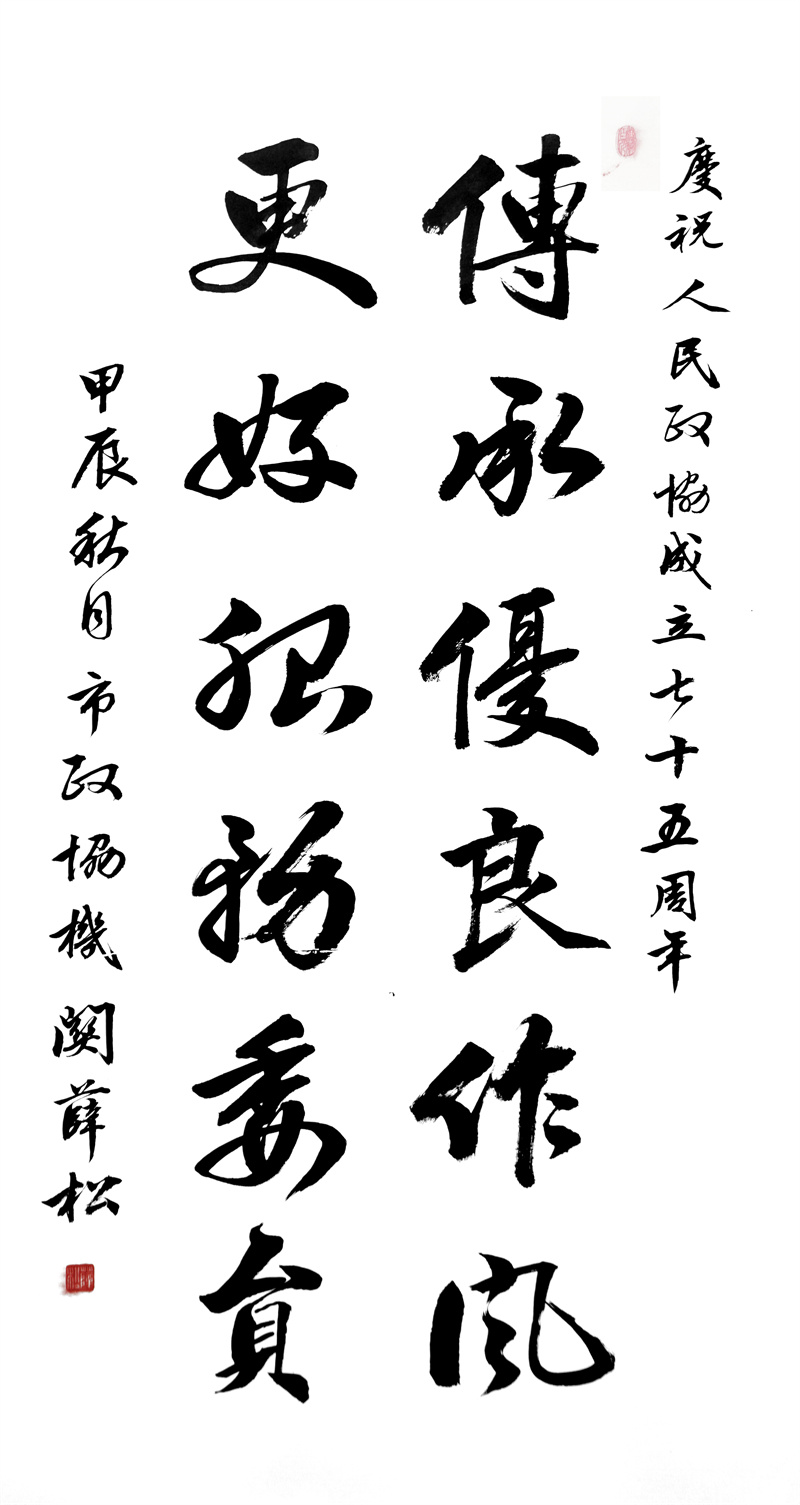 慶祝人民政協成立七十五周年
傳承優良作風
更好服務委員
甲辰秋月市政協機關薛松